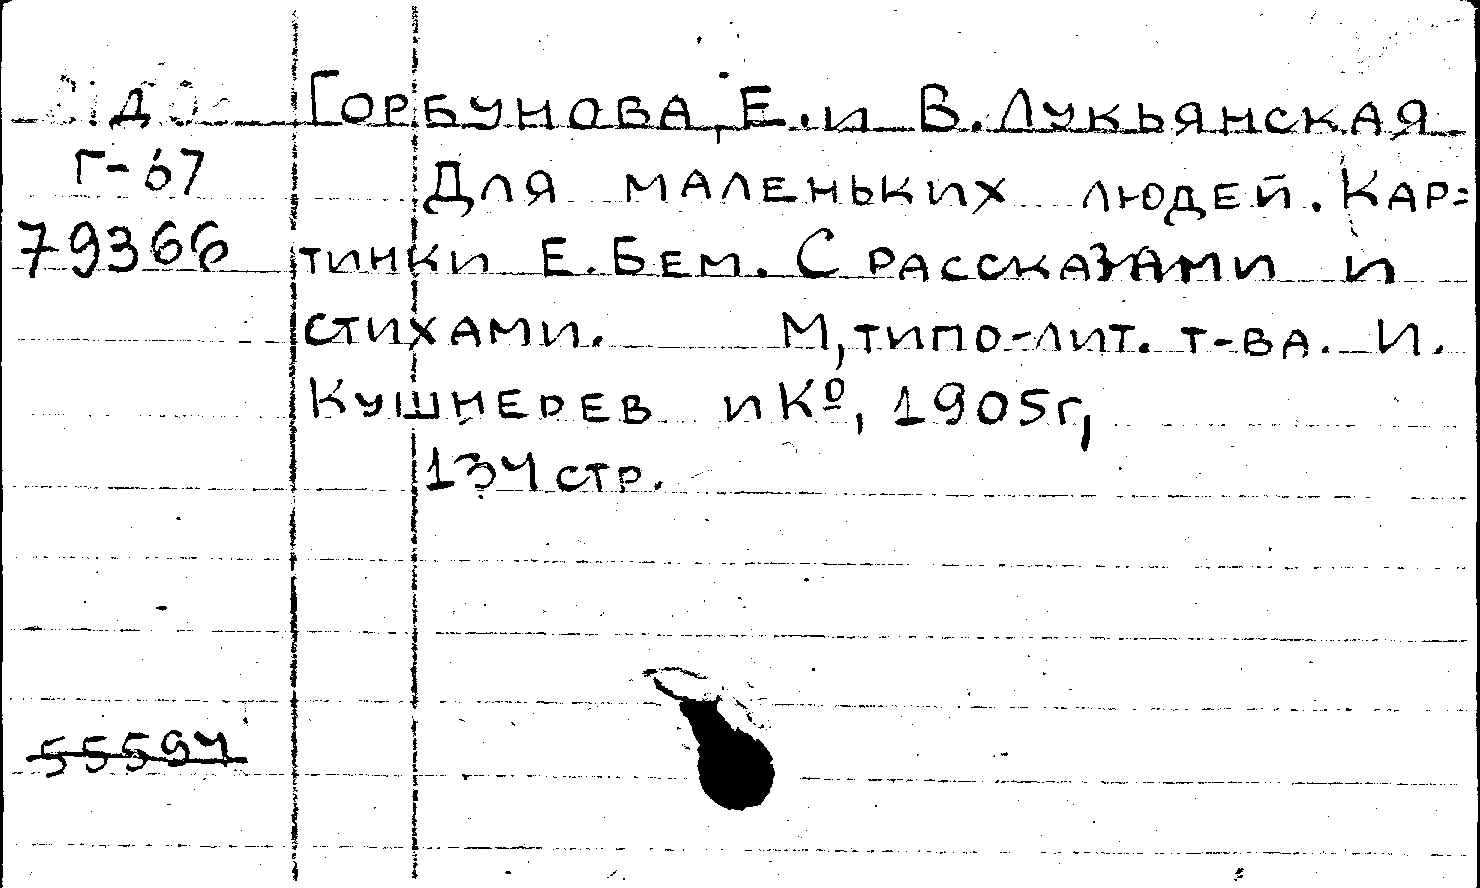 Д Горбунова, Е. и В. Лукьянская
Г-67 Для маленьких людей. Кар=
79366 тинки Е. Бем. С рассказами и
стихами. М, типо-лит. т-ва. И.
Кушнерев и К°, 1905г,
134 стр.
55594